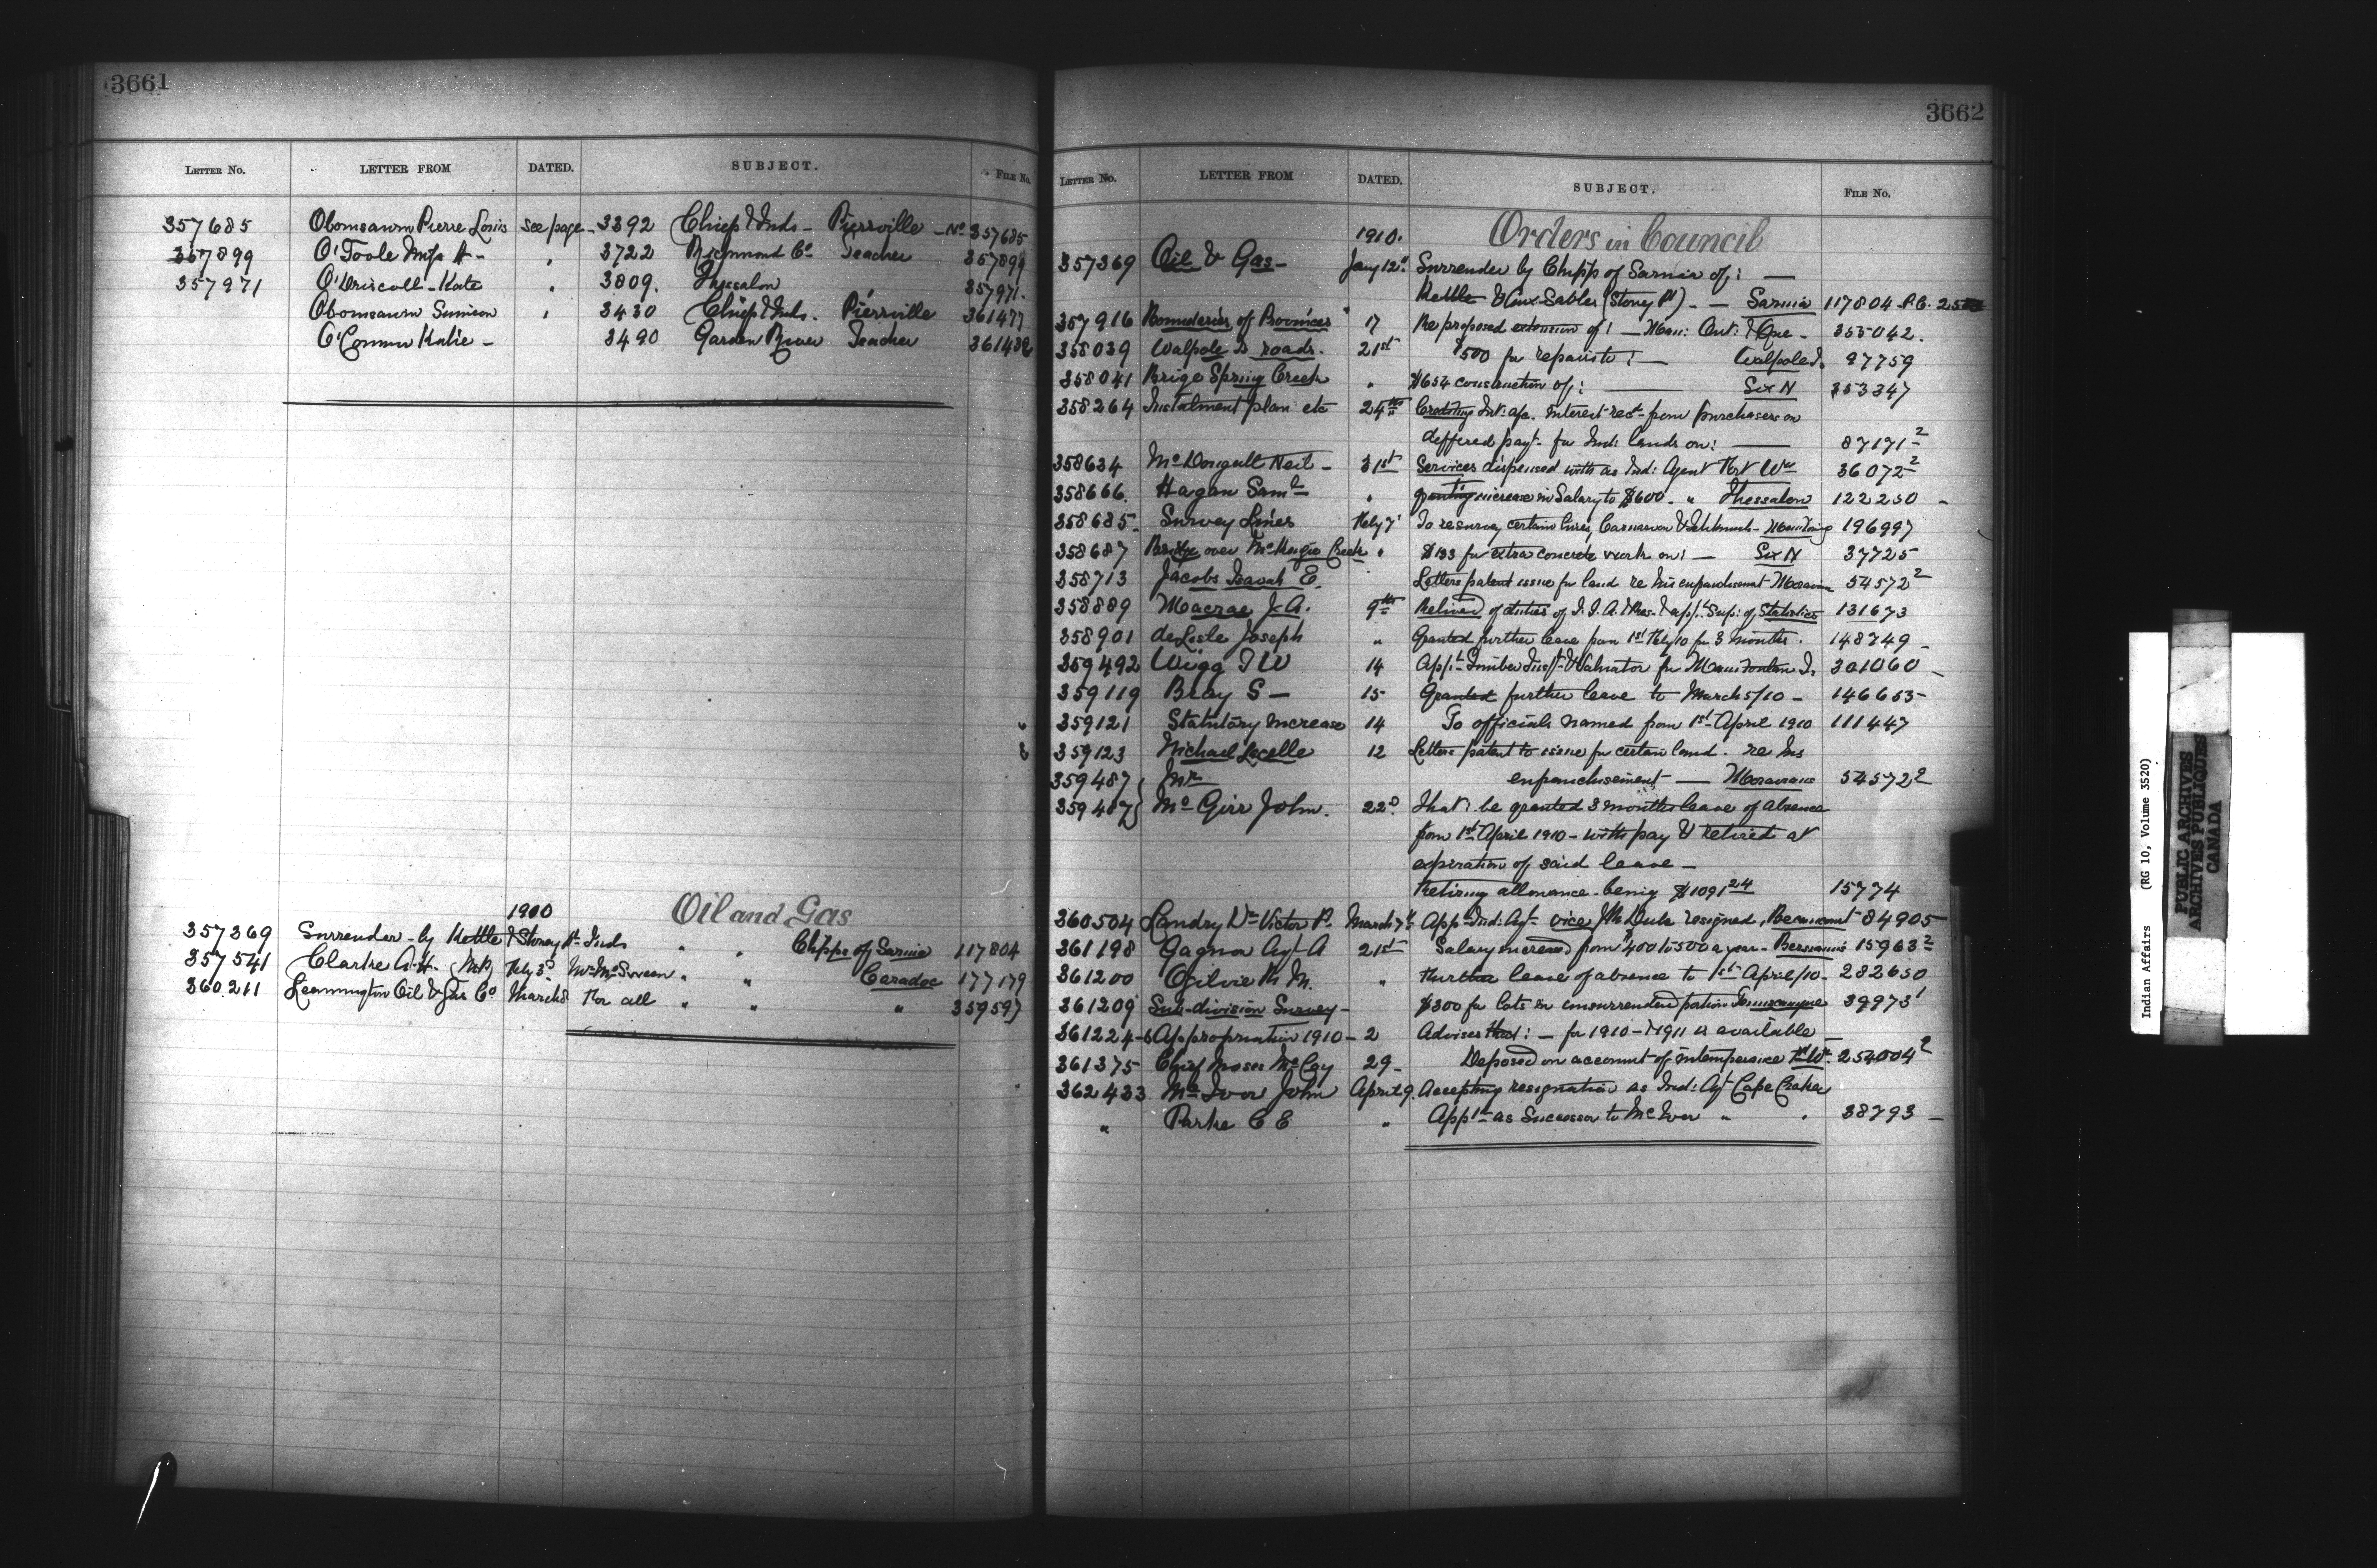 3661
LETTER NO. LETTER FROM DATED. SUBJECT. FILE No.
357685 Obomsawin Pierre Louis see page 3392 Chief & Inds - Pierrville - No 357685
357899 O'Toole Miss A - " 3722 Richmond Co. Teacher 357899
357971 O'Driscoll - Kate " 3809. Thessalon 357971.
Obomsawin Simeon " 3430 Chief & Inds. Pierrville 361477
O'Connor Katie - 3490 Garden River Teacher 361432
1910 Oil and Gas
357369 Surrender - by Kettle & Stoney Pt Inds " " Chipps of Sarnia 117804
357541 Clarke A.H. (M.P.) Feby 3d " " Caradoc 177179
360211 Leamington Oil & Gas Co March 8 For all " " " 359597
3662
LETTER No. LETTER FROM DATED. SUBJECT. FILE No.
1910. Orders in Council
357369 Oil & Gas - Jany 12th Surrender by Chipps of Sarnia of: —
Kettle & Aux Sables (Stoney Pt) - — Sarnia 117804 P.C.
357916 Boundaries of Provinces " 17 Re proposed extension of! — Man: Ont: & Que - 355042.
358039 Walpole Is roads. 21st $500 for repairs to! — Walpole Is 97759
358041 Brige Spring Creek " $654 construction of: — Six N 353347
358264 Instalment plan etc 24th Crediting Int: a/c. interest recd from purchasers on
deffered payt. for Ind: lands on: — 87171-2
358634 McDougall Neil - 31st Services dispensed with as Ind: Agent Fort Wm 36072-2
358666. Hagan Saml " granting increase in Salary to $600. " Thessalon 122250 -
358685. Survey Lines Feby 7 To resurvey certain lines, Carnarvon & 196997
358687 Bridge over McKenzie Creek " $133 for extra concrete work on! — Six N 37725
358713 Jacobs Isaiah E. Letters patent issue for land re his enfranchisement - Moravian 54572-2
358889 Macrae J.A. 9th Relived of duties of I.I.A. & Res. & appt Supt: of Statistics 131673
358901 deLisle Joseph " Granted further leave from 1st Feby/10 for 3 months. 148749 -
359492 Wigg T W 14 Appt Timber Inspt & Valuator for Manitoulin Is 301060 -
359119 Bray S - 15 Granted further leave to March 5/10 - 146653
359121 Statutory Increase 14 To officials named from 1st April 1910 111447
359123 Nichael Lecelle 12 Letters patent to issue for certain land. re his
359487 Mr enfranchisement — Moravians 54572 2
359487 McGirr John. 22d. That: be granted 3 months leave of absence
from 1st April 1910 - with pay & retired at
expiration of said leave -
Retiring allowance being $1091 24 15774
360504 Landry Dr Victor P. March 7th App: Ind: Agt. vice Duke resigned, Becancourt 84905
361198 Gagnon Agt A 21st Salary increased from $400 to 500 a year - Bersimis 15963 2
361200 Ogilvie R M. " Further leave of absence to 1st April/10 - 282650
361209 Sub-division Survey - $300 for lots in unsurrendered portion Temiscamingue 39973 1
361224-6 Appropriation 1910 - 2 Advises that! - for 1910-1911 is available —
361375 Chief Moses McCoy 29 - Deposed on account of intemperance 254004 2
362433 McIver John April 9. Accepting resignation as Ind: Agt Cape Croker
" Parke C E " Appt as Successor to McIver " " 38793 -
Indian Affairs (RG 10, Volume 3520)
PUBLIC ARCHIVES
ARCHIVES PUBLIQUES
CANADA